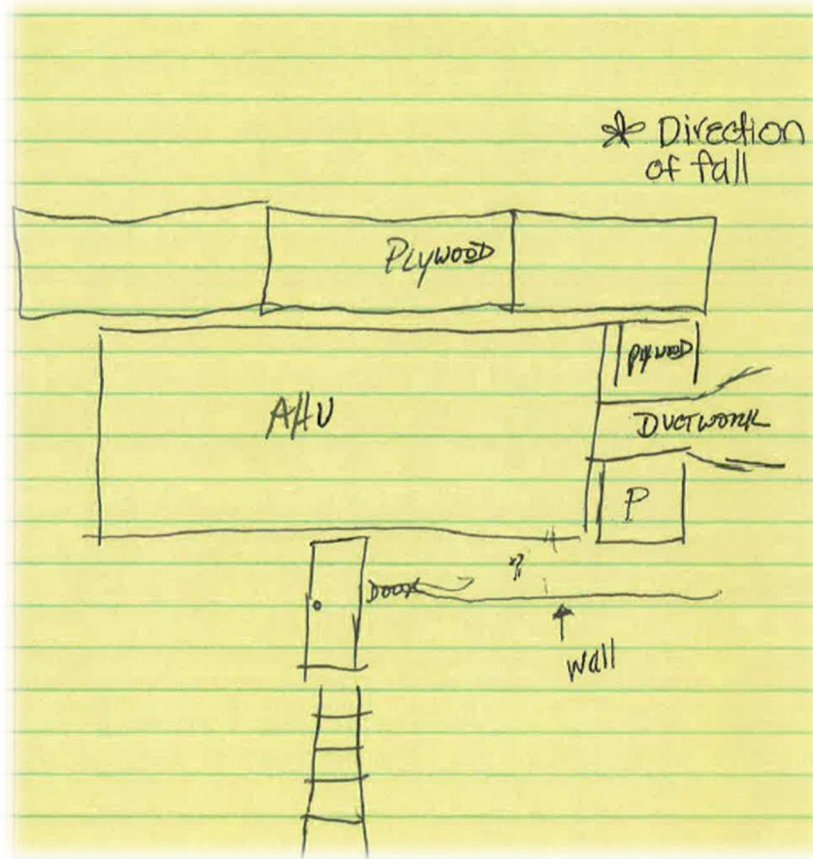 * Direction
of fall
PLYWOOD
PLYWOOD
AHU
DUCTWORK
P
DOOR
?
Wall